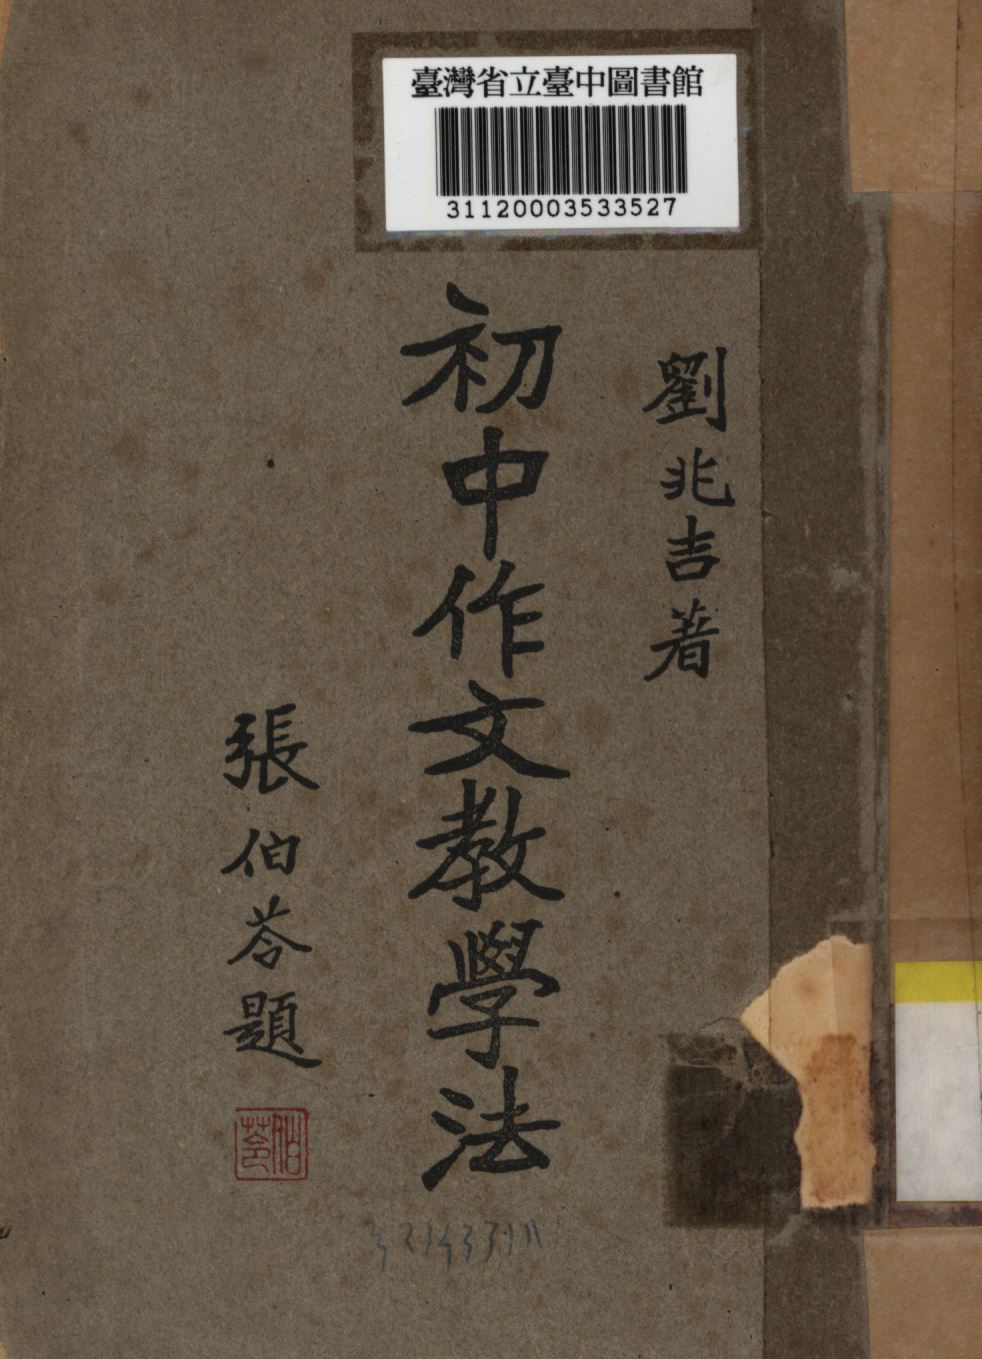 臺灣省立臺中圖書館
31120003533527
劉兆吉著
初中作文教學法
張伯苓題
伯苓